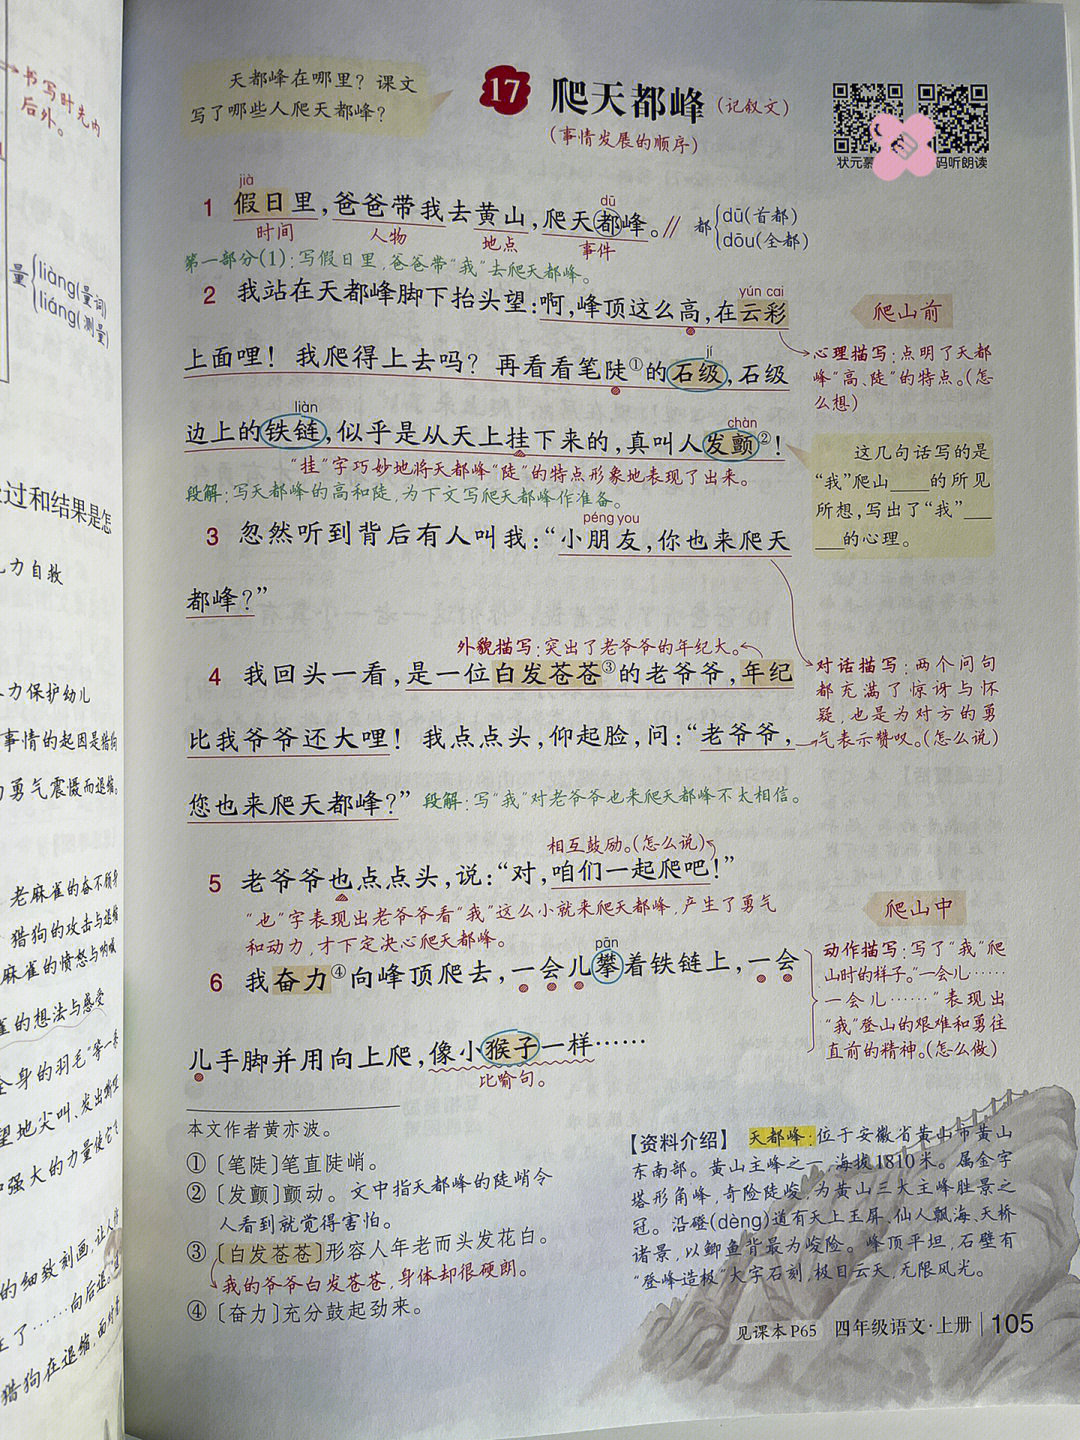 书写时先内
后外。
量
liàng(量词)
liáng(测量)
过和结果是怎
力自救
力保护幼儿
事情的起因是猎狗
勇气震慑而退缩。
老麻雀的奋不顾身
猎狗的攻击与退缩
麻雀的愤怒与呐喊
雀的想法与感受
全身的羽毛"等一系
望地尖叫、发出嘶哑
强大的力量使它飞
的细致刻画,让人体
生了……向后退。
猎狗在退缩,面对
天都峰在哪里?课文
写了哪些人爬天都峰?
17 爬天都峰 (记叙文)
(事情发展的顺序)
状元
码听朗读
jià dū
1 假日里,爸爸带我去黄山,爬天都峰。∥ 都 dū(首都)
dōu(全都)
时间 人物 地点 事件
第一部分(1):写假日里,爸爸带"我"去爬天都峰。
yún cai
2 我站在天都峰脚下抬头望:啊,峰顶这么高,在云彩
爬山前
jí
上面哩!我爬得上去吗?再看看笔陡①的石级,石级
心理描写:点明了天都
峰"高、陡"的特点。(怎
么想)
liàn chàn
边上的铁链,似乎是从天上挂下来的,真叫人发颤②!
"挂"字巧妙地将天都峰"陡"的特点形象地表现了出来。
段解:写天都峰的高和陡,为下文写爬天都峰作准备。
这几句话写的是
"我"爬山____的所见
所想,写出了"我"__
__的心理。
péng you
3 忽然听到背后有人叫我:"小朋友,你也来爬天
都峰?"
外貌描写:突出了老爷爷的年纪大。
4 我回头一看,是一位白发苍苍③的老爷爷,年纪
比我爷爷还大哩!我点点头,仰起脸,问:"老爷爷,
您也来爬天都峰?" 段解:写"我"对老爷爷也来爬天都峰不太相信。
对话描写:两个问句
都充满了惊讶与怀
疑,也是为对方的勇
气表示赞叹。(怎么说)
相互鼓励。(怎么说)
5 老爷爷也点点头,说:"对,咱们一起爬吧!"
"也"字表现出老爷爷看"我"这么小就来爬天都峰,产生了勇气
和动力,才下定决心爬天都峰。
爬山中
pān
6 我奋力④向峰顶爬去,一会儿攀着铁链上,一会
儿手脚并用向上爬,像小猴子一样……
比喻句。
动作描写:写了"我"爬
山时的样子。"一会儿……
一会儿……"表现出
"我"登山的艰难和勇往
直前的精神。(怎么做)
本文作者黄亦波。
①〔笔陡〕笔直陡峭。
②〔发颤〕颤动。文中指天都峰的陡峭令
人看到就觉得害怕。
③〔白发苍苍〕形容人年老而头发花白。
我的爷爷白发苍苍,身体却很硬朗。
④〔奋力〕充分鼓起劲来。
【资料介绍】 天都峰:位于安徽省黄山市黄山
东南部。黄山主峰之一,海拔1810米。属金字
塔形角峰,奇险陡峻,为黄山三大主峰胜景之
冠。沿磴(dèng)道有天上玉屏、仙人飘海、天桥
诸景,以鲫鱼背最为峻险。峰顶平坦,石壁有
"登峰造极"大字石刻,极目云天,无限风光。
见课本P65 四年级语文·上册 105